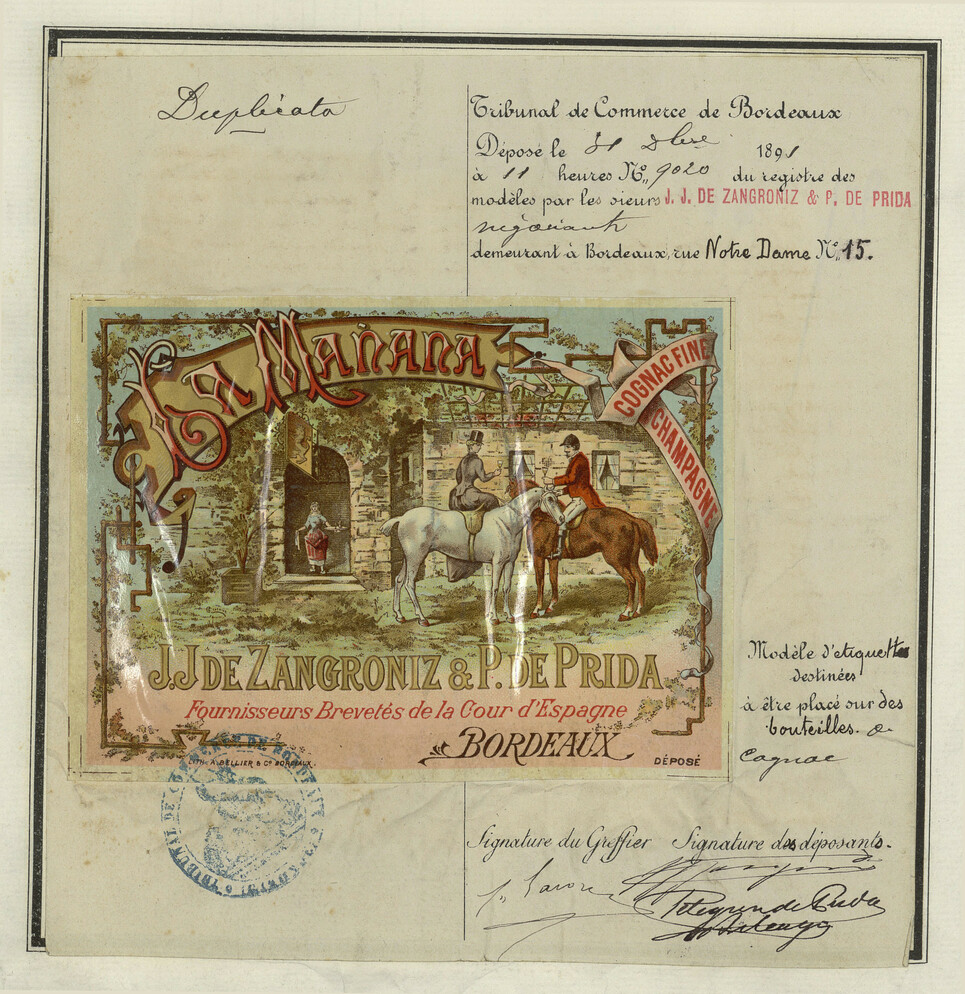 Duplicata
Tribunal de Commerce de Bordeaux
Déposé le 31 Xbre 1891
à 11 heures Nº 9020 du registre des
modèles par les sieurs J. J. DE ZANGRONIZ & P. DE PRIDA
négociants
demeurant à Bordeaux, rue Notre Dame Nº 15.
La Mañana
COGNAC FINE
CHAMPAGNE
J.J DE ZANGRONIZ & P. DE PRIDA
Fournisseurs Brevetés de la Cour d'Espagne
BORDEAUX
LITH. A. BELLIER & Cº BORDEAUX.
DÉPOSÉ
Modèle d'etiquettes
destinées
à être placé sur des
bouteilles. de
Cognac
TRIBUNAL DE COMMERCE DE BORDEAUX
Signature du Greffier Signature des déposants.